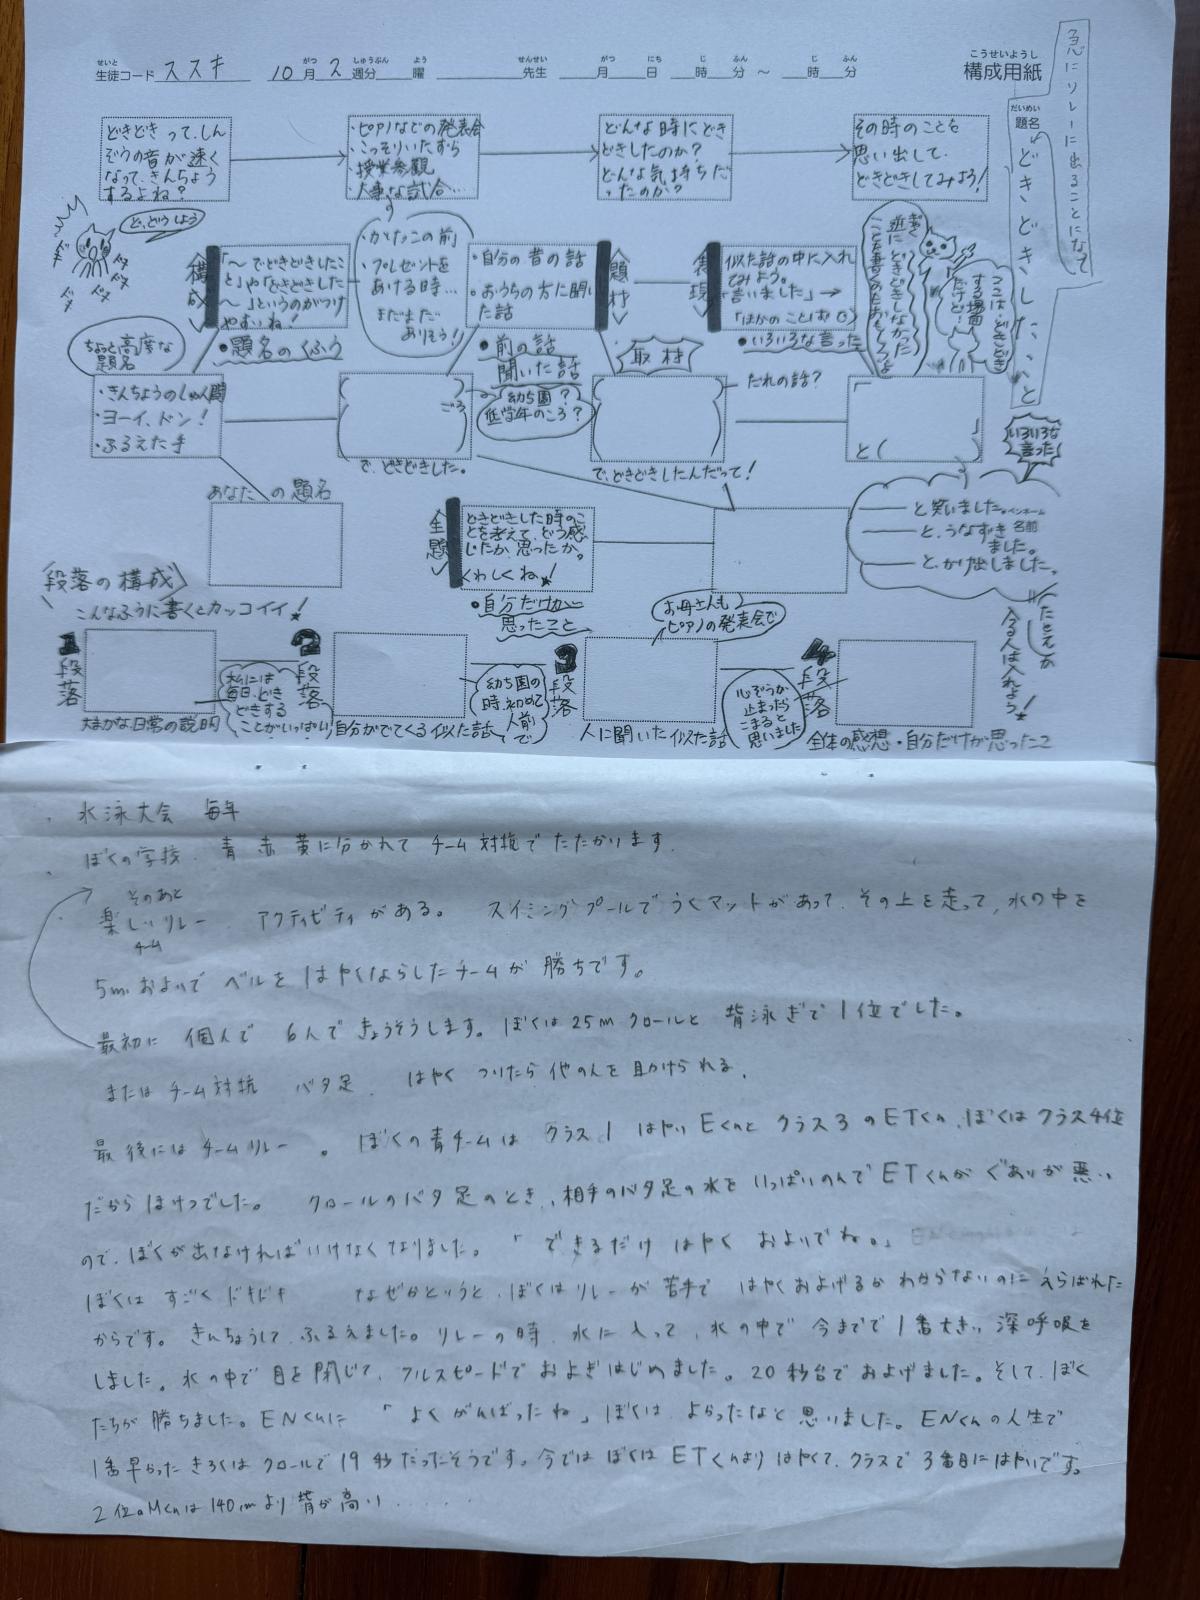 せいと がつ しゅうぶん よう せんせい がつ にち じ ふん じ ふん こうせいようし
生徒コード ススキ 10月2週分 曜 先生 月 日 時 分 ～ 時 分 構成用紙
だいめい
題名
どきどきしたこと
急にリレーに出ることになって
どきどきって、しん
ぞうの音が速く
なって、きんちょう
するよね?
・ピアノなどの発表会
・こっそりいたずら
・授業参観
・大事な試合…
どんな時にどき
どきしたのか?
どんな気持ちだ
ったのか?
その時のことを
思い出して、
どきどきしてみよう!
ど、どうしよう
ドキ
ドキ
ドキ
ドキ
構成
「～でどきどきしたこ
と」や「どきどきした
～」というのがつけ
やすいね!
●題名のくふう
・かけっこの前
・プレゼントを
あける時…
まだまだ
ありそう!
・自分の昔の話
・おうちの方に聞い
た話
●前の話
聞いた話
題材
表現
似た話の中に入れ
てみよう。
「言いました」→
「ほかのことば」
●いろいろな言った
最近どきどきしなかった
ことを書くのもおもしろいよ
ここは、どきどき
する場面
だけど…
ちょっと高度な
題名
・きんちょうのしゅん間
・ヨーイ、ドン!
・ふるえた手
ごろ
で、どきどきした。
幼ち園?
低学年のころ?
取材
だれの話?
で、どきどきしたんだって!
」
と(
いろいろな
言った
あなたの題名
全題
どきどきした時のこ
とを考えて、どう感
じたか、思ったか。
くわしくね!
●自分だけが
思ったこと
と笑いました。
と、うなずき
ました。
と、かけ出しました。
ペンネーム
名前
たとえが
入る人は入れよう!
段落の構成
こんなふうに書くとカッコイイ!
1段落
私には
毎日、どき
どきする
ことがいっぱい
大まかな日常の説明
2段落
幼ち園の
時、初めて
人前で
自分がでてくる似た話
3段落
お母さんも
ピアノの発表会で
人に聞いた似た話
4段落
心ぞうが
止まったら
こまると
思いました
全体の感想・自分だけが思ったこ
水泳大会 毎年
ぼくの学校、青 赤 黄に分かれて チーム対抗でたたかいます。
そのあと
楽しいリレー、アクティビティがある。 スイミングプールでうくマットがあって、その上を走って、水の中を
チーム
5mおよいで ベルを はやくならしたチームが 勝ちです。
最初に 個人で 6人で きょうそうします。ぼくは25mクロールと 背泳ぎで 1位でした。
または チーム対抗 バタ足、 はやく ついたら 他の人を 助けられる。
最後には チームリレー。 ぼくの青チームは クラス1 はやい Eくんと クラス3 のETくん、ぼくは クラス4位
だから ほけつでした。 クロールのバタ足のとき、相手のバタ足の水を いっぱいのんで ETくんが ぐあいが 悪い
ので、ぼくが出なければいけなくなりました。「できるだけ はやく およいでね。」
ぼくは すごく ドキドキ なぜかというと、ぼくは リレーが 苦手で はやくおよげるか わからないのに えらばれた
からです。 きんちょうして、ふるえました。 リレーの時、水に入って、水の中で 今までで 1番大きい 深呼吸を
しました。水の中で 目を閉じて、フルスピードで およぎはじめました。20秒台で およげました。そして、ぼく
たちが 勝ちました。ENくんに 「よくがんばったね」ぼくは、よかったなと 思いました。ENくんの人生で
1番早かった きろくは クロールで 19秒だったそうです。今では ぼくは ETくんより はやくて、クラスで 3番目にはやいです。
2位のMくんは 140cmより 背が高い . . . . . .